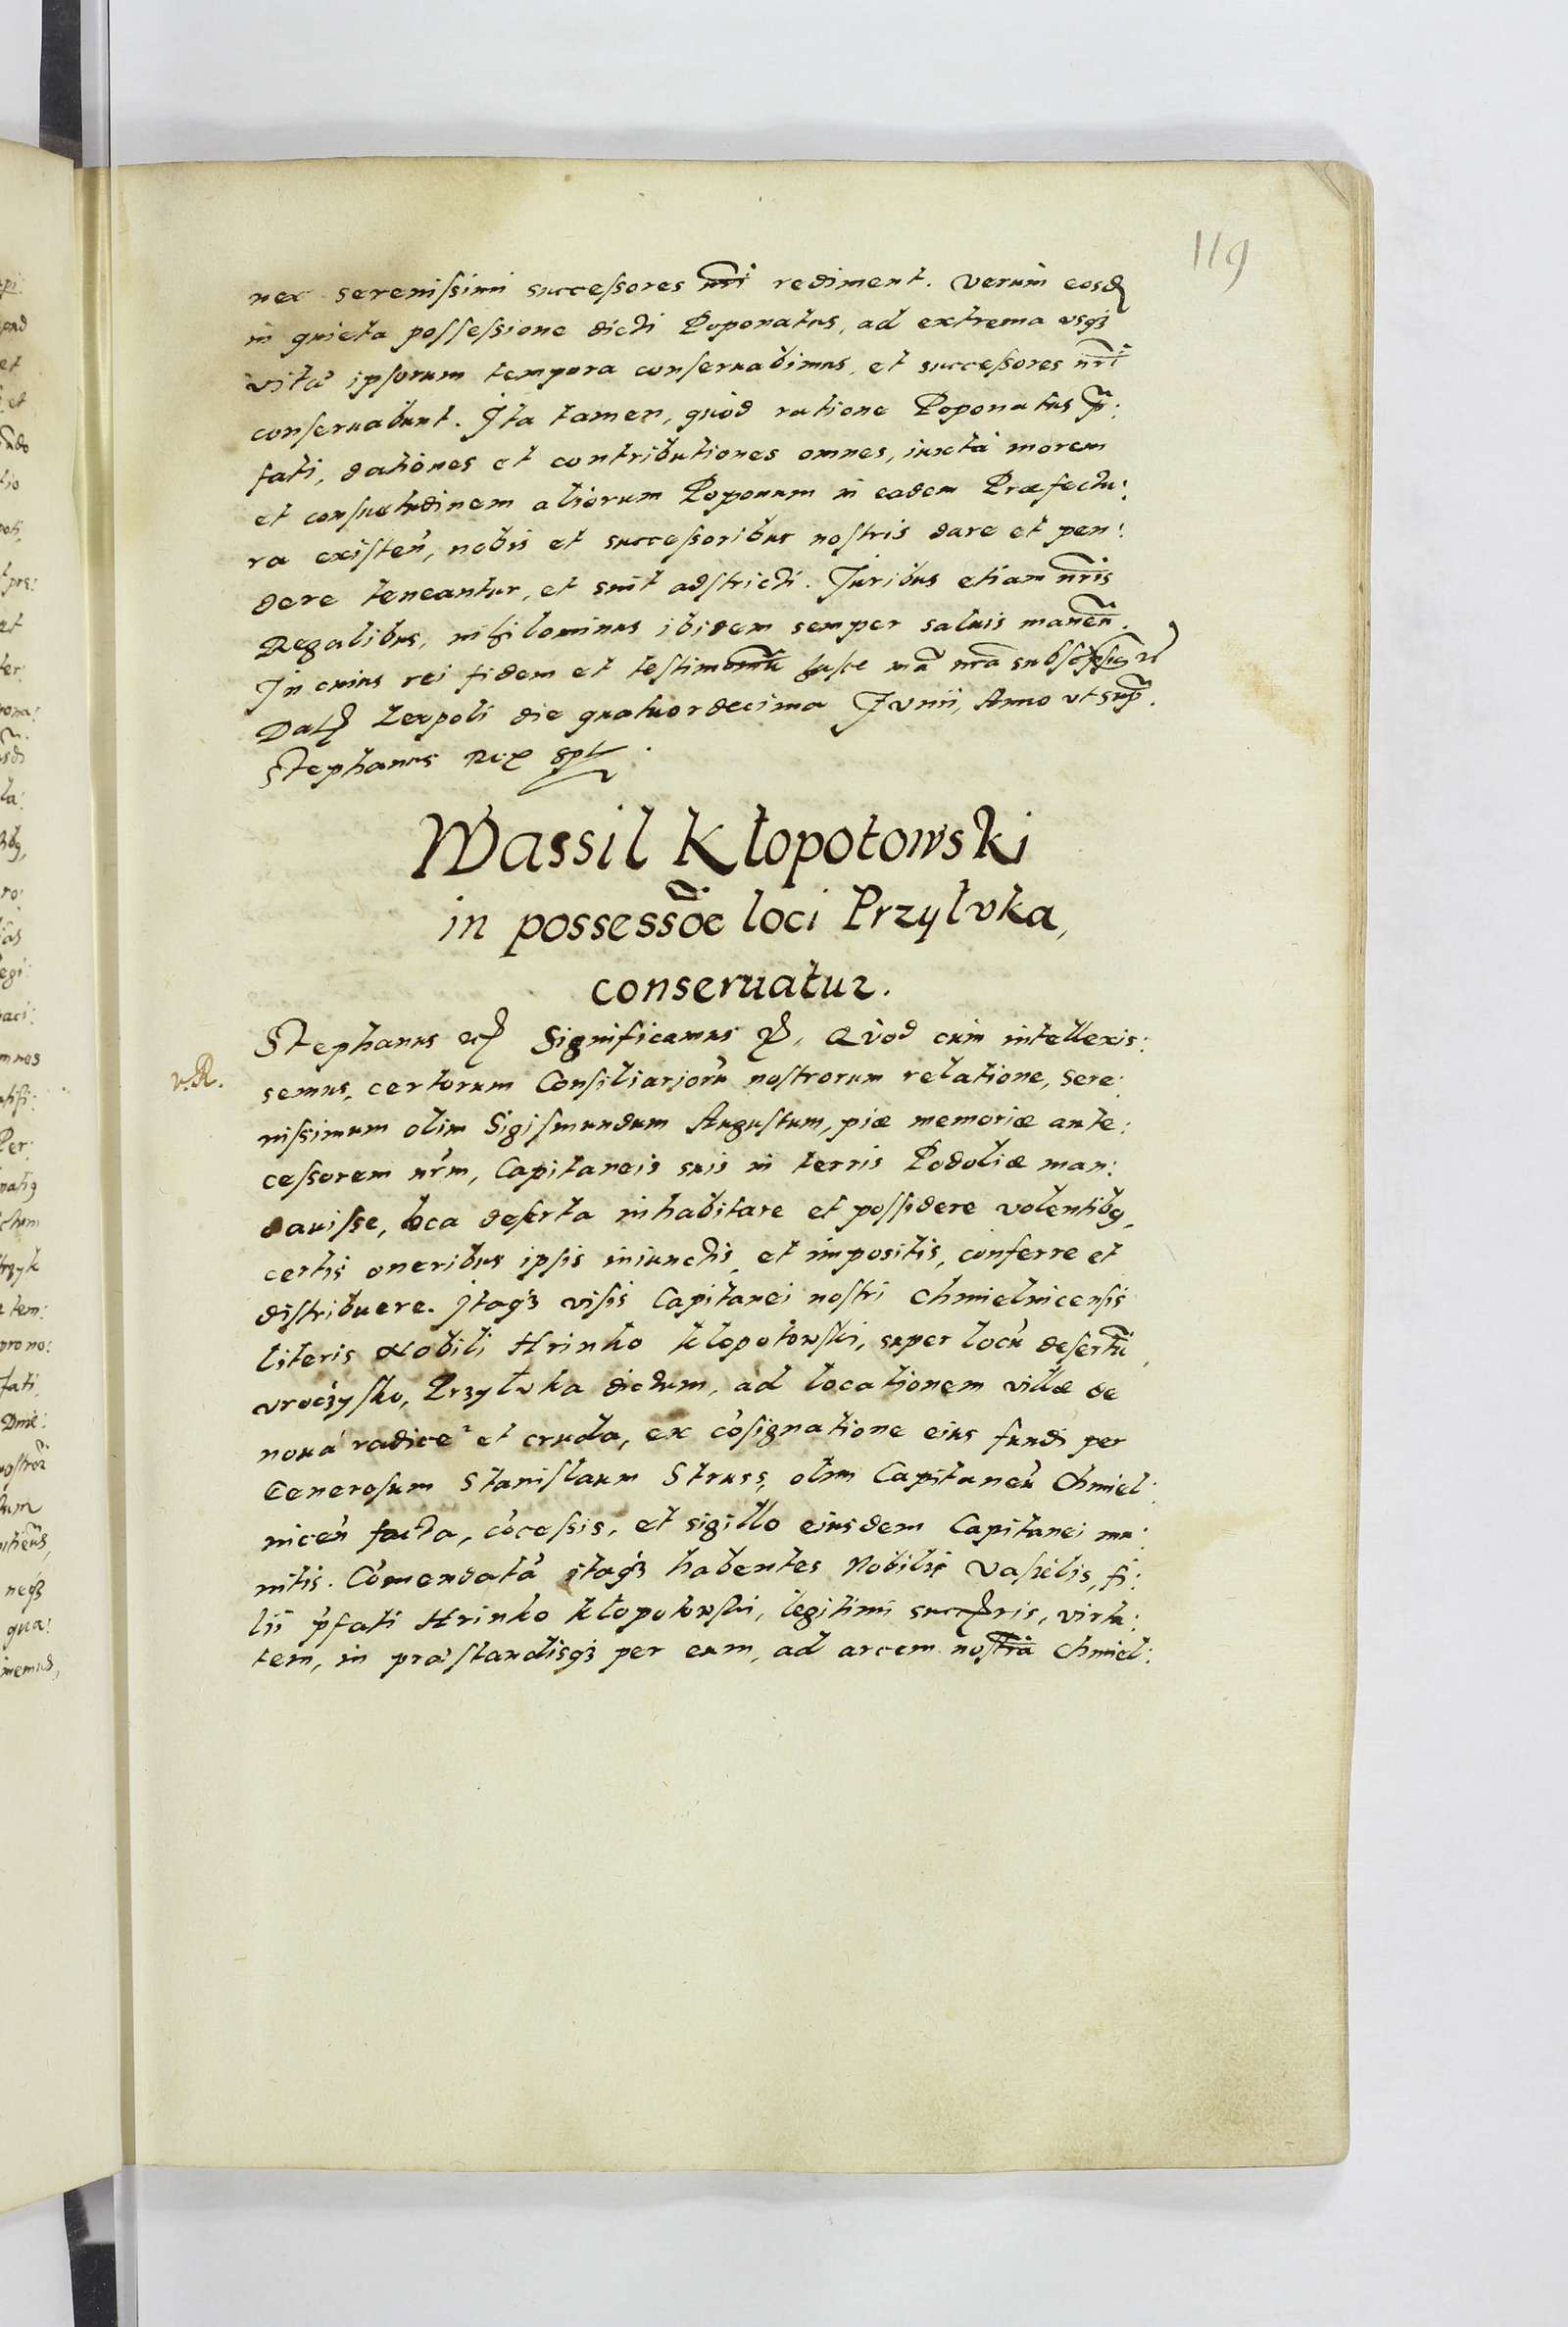 119
nec serenissimi successores nri rediment. Verum eosd
in quieta possessione dicti Poponatus, ad extrema usq3
vitæ ipsorum tempora conseruabimus, et successores nri
conseruabunt. Ita tamen, quod ratione Poponatus p:
fati, dationes et contributiones omnes, iuxta morem
et consuetudinem aliorum Poponum in eadem Præfectu:
ra existeñ, nobis et successoribus nostris dare et pen:
dere teneantur, et sint adstricti. Juribus etiam nris
Regalibus, nihilominus ibidem semper saluis maneñ.
In cuius rei fidem et testimoniũ hasce mã nrã subscpsi
Dat Leopoli die quatuordecima Junii, Anno ut supª.
Stephanus Rex spt.
Wassil Kłopotowski
in possessõe loci Przyluka,
conseruatur.
v.R.
Stephanus etc Significamus etc, Quod cum intellexis:
semus, certorum Consiliarioru nostrorum relatione, sere:
nissimum olim Sigismundum Augustum, piæ memoriæ ante:
cessorem nrm, Capitaneis suis in terris Podoliæ man:
dauisse, loca deserta inhabitare et possidere volentibq,
certis oneribus ipsis iniunctis et impositis, conferre et
distribuere. Itaq3 visis Capitanei nostri Chmielnicensis
literis Nobili Hrinko Klopotowski, super locũ desertũ,
vroczysko, Przyłuka dictum, ad locationem villæ de
noua radice et cruda, ex cõsignatione eius fundi per
Generosum Stanislaum Struss, olim Capitaneũ Chmiel:
niceñ facta, cõcessis, et sigillo eiusdem Capitanei mu:
nitis. Cõmendatã itaq3 habentes Nobilis Vasilis, fi:
lii pfati Hrinko Kłopotowski, legitimi successoris, virtu:
tem, in præstandisq3 per eum, ad arcem nostrã Chmiel: